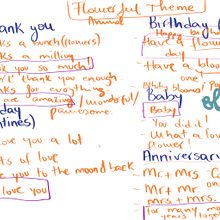 Flowerful Theme
Animal
hank you
ks a bunch (flowers)
ks a million
k you so much!
ll thank you enough
ks for everything
are amazing / wonderful
pawesome.
day
ntines)
ove you a lot
ts of love
e you to the moon & back
love you
Birthday
Happy birthd
Have a flower
day
Have a bloo
one
Baby
Baby
You did it!
What a lov
flower!
Anniversar
Mr + Mrs
Mr + Mr
mrs + mrs
for many ma
years